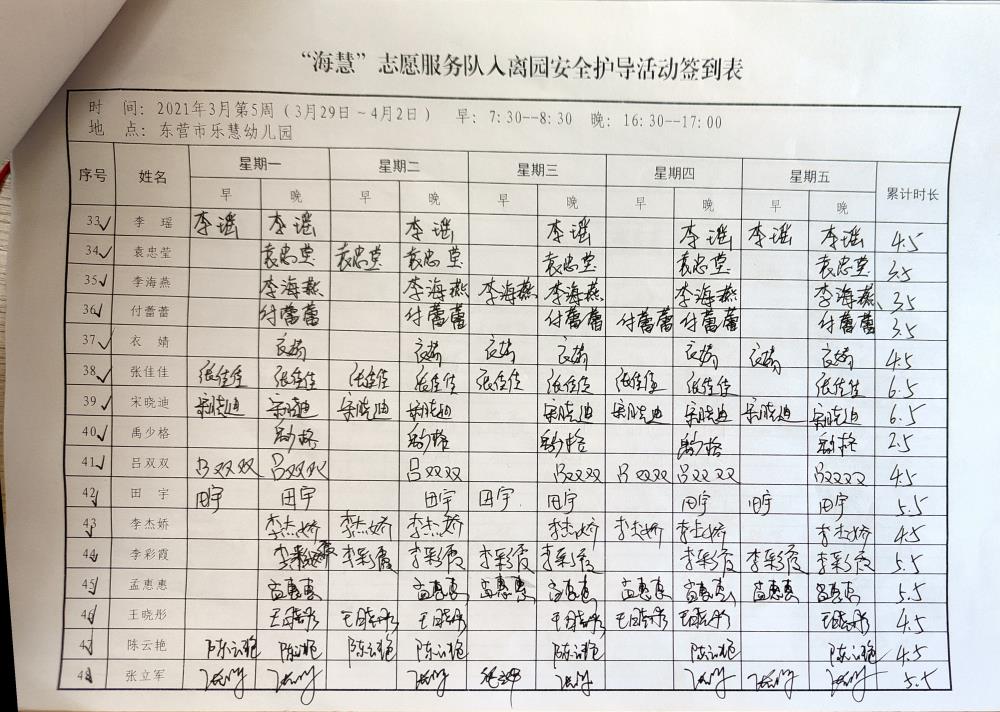 “海慧”志愿服务队入离园安全护导活动签到表
时 间：2021年3月第5周（3月29日～4月2日） 早：7:30--8:30 晚：16:30--17:00
地 点：东营市乐慧幼儿园
序号 姓名 星期一 星期二 星期三 星期四 星期五 累计时长
早 晚 早 晚 早 晚 早 晚 早 晚
33 李 瑶 李瑶 李瑶 李瑶 李瑶 李瑶 李瑶 李瑶 4.5
34 袁忠莹 袁忠莹 袁忠莹 袁忠莹 袁忠莹 袁忠莹 袁忠莹 3.5
35 李海燕 李海燕 李海燕 李海燕 李海燕 李海燕 李海燕 3.5
36 付蕾蕾 付蕾蕾 付蕾蕾 付蕾蕾 付蕾蕾 付蕾蕾 付蕾蕾 3.5
37 衣 婧 衣婧 衣婧 衣婧 衣婧 衣婧 衣婧 衣婧 4.5
38 张佳佳 张佳佳 张佳佳 张佳佳 张佳佳 张佳佳 张佳佳 张佳佳 张佳佳 张佳佳 6.5
39 宋晓迪 宋晓迪 宋晓迪 宋晓迪 宋晓迪 宋晓迪 宋晓迪 宋晓迪 宋晓迪 宋晓迪 6.5
40 禹少格 禹少格 禹少格 禹少格 禹少格 禹少格 2.5
41 吕双双 吕双双 吕双双 吕双双 吕双双 吕双双 吕双双 吕双双 4.5
42 田 宇 田宇 田宇 田宇 田宇 田宇 田宇 田宇 田宇 5.5
43 李杰娇 李杰娇 李杰娇 李杰娇 李杰娇 李杰娇 李杰娇 李杰娇 4.5
44 李彩霞 李彩霞 李彩霞 李彩霞 李彩霞 李彩霞 李彩霞 李彩霞 李彩霞 5.5
45 孟惠惠 孟惠惠 孟惠惠 孟惠惠 孟惠惠 孟惠惠 孟惠惠 孟惠惠 孟惠惠 5.5
46 王晓彤 王晓彤 王晓彤 王晓彤 王晓彤 王晓彤 王晓彤 王晓彤 4.5
47 陈云艳 陈云艳 陈云艳 陈云艳 陈云艳 陈云艳 陈云艳 陈云艳 4.5
48 张立军 5.5